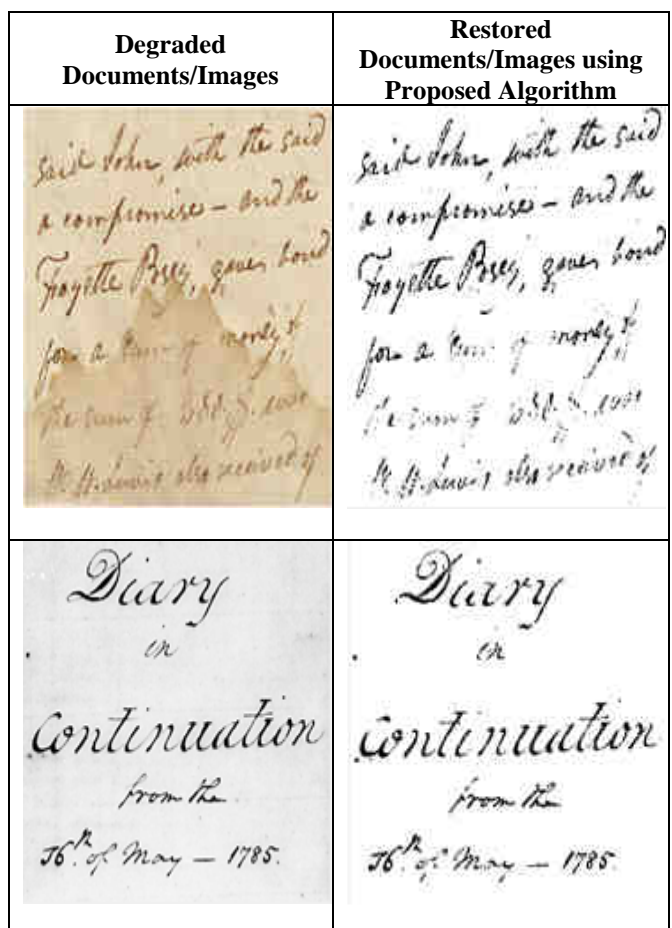 Degraded
Documents/Images
Restored
Documents/Images using
Proposed Algorithm
said John, with the said
a compromise — and the
Fayette Posey, gave bond
for a sum of money,
the sum of
Lewis also received of
said John, with the said
a compromise — and the
Fayette Posey, gave bond
for a sum of money,
the sum of
Lewis also received of
Diary
in
Continuation
from the
16th of May — 1785.
Diary
in
Continuation
from the
16th of May — 1785.